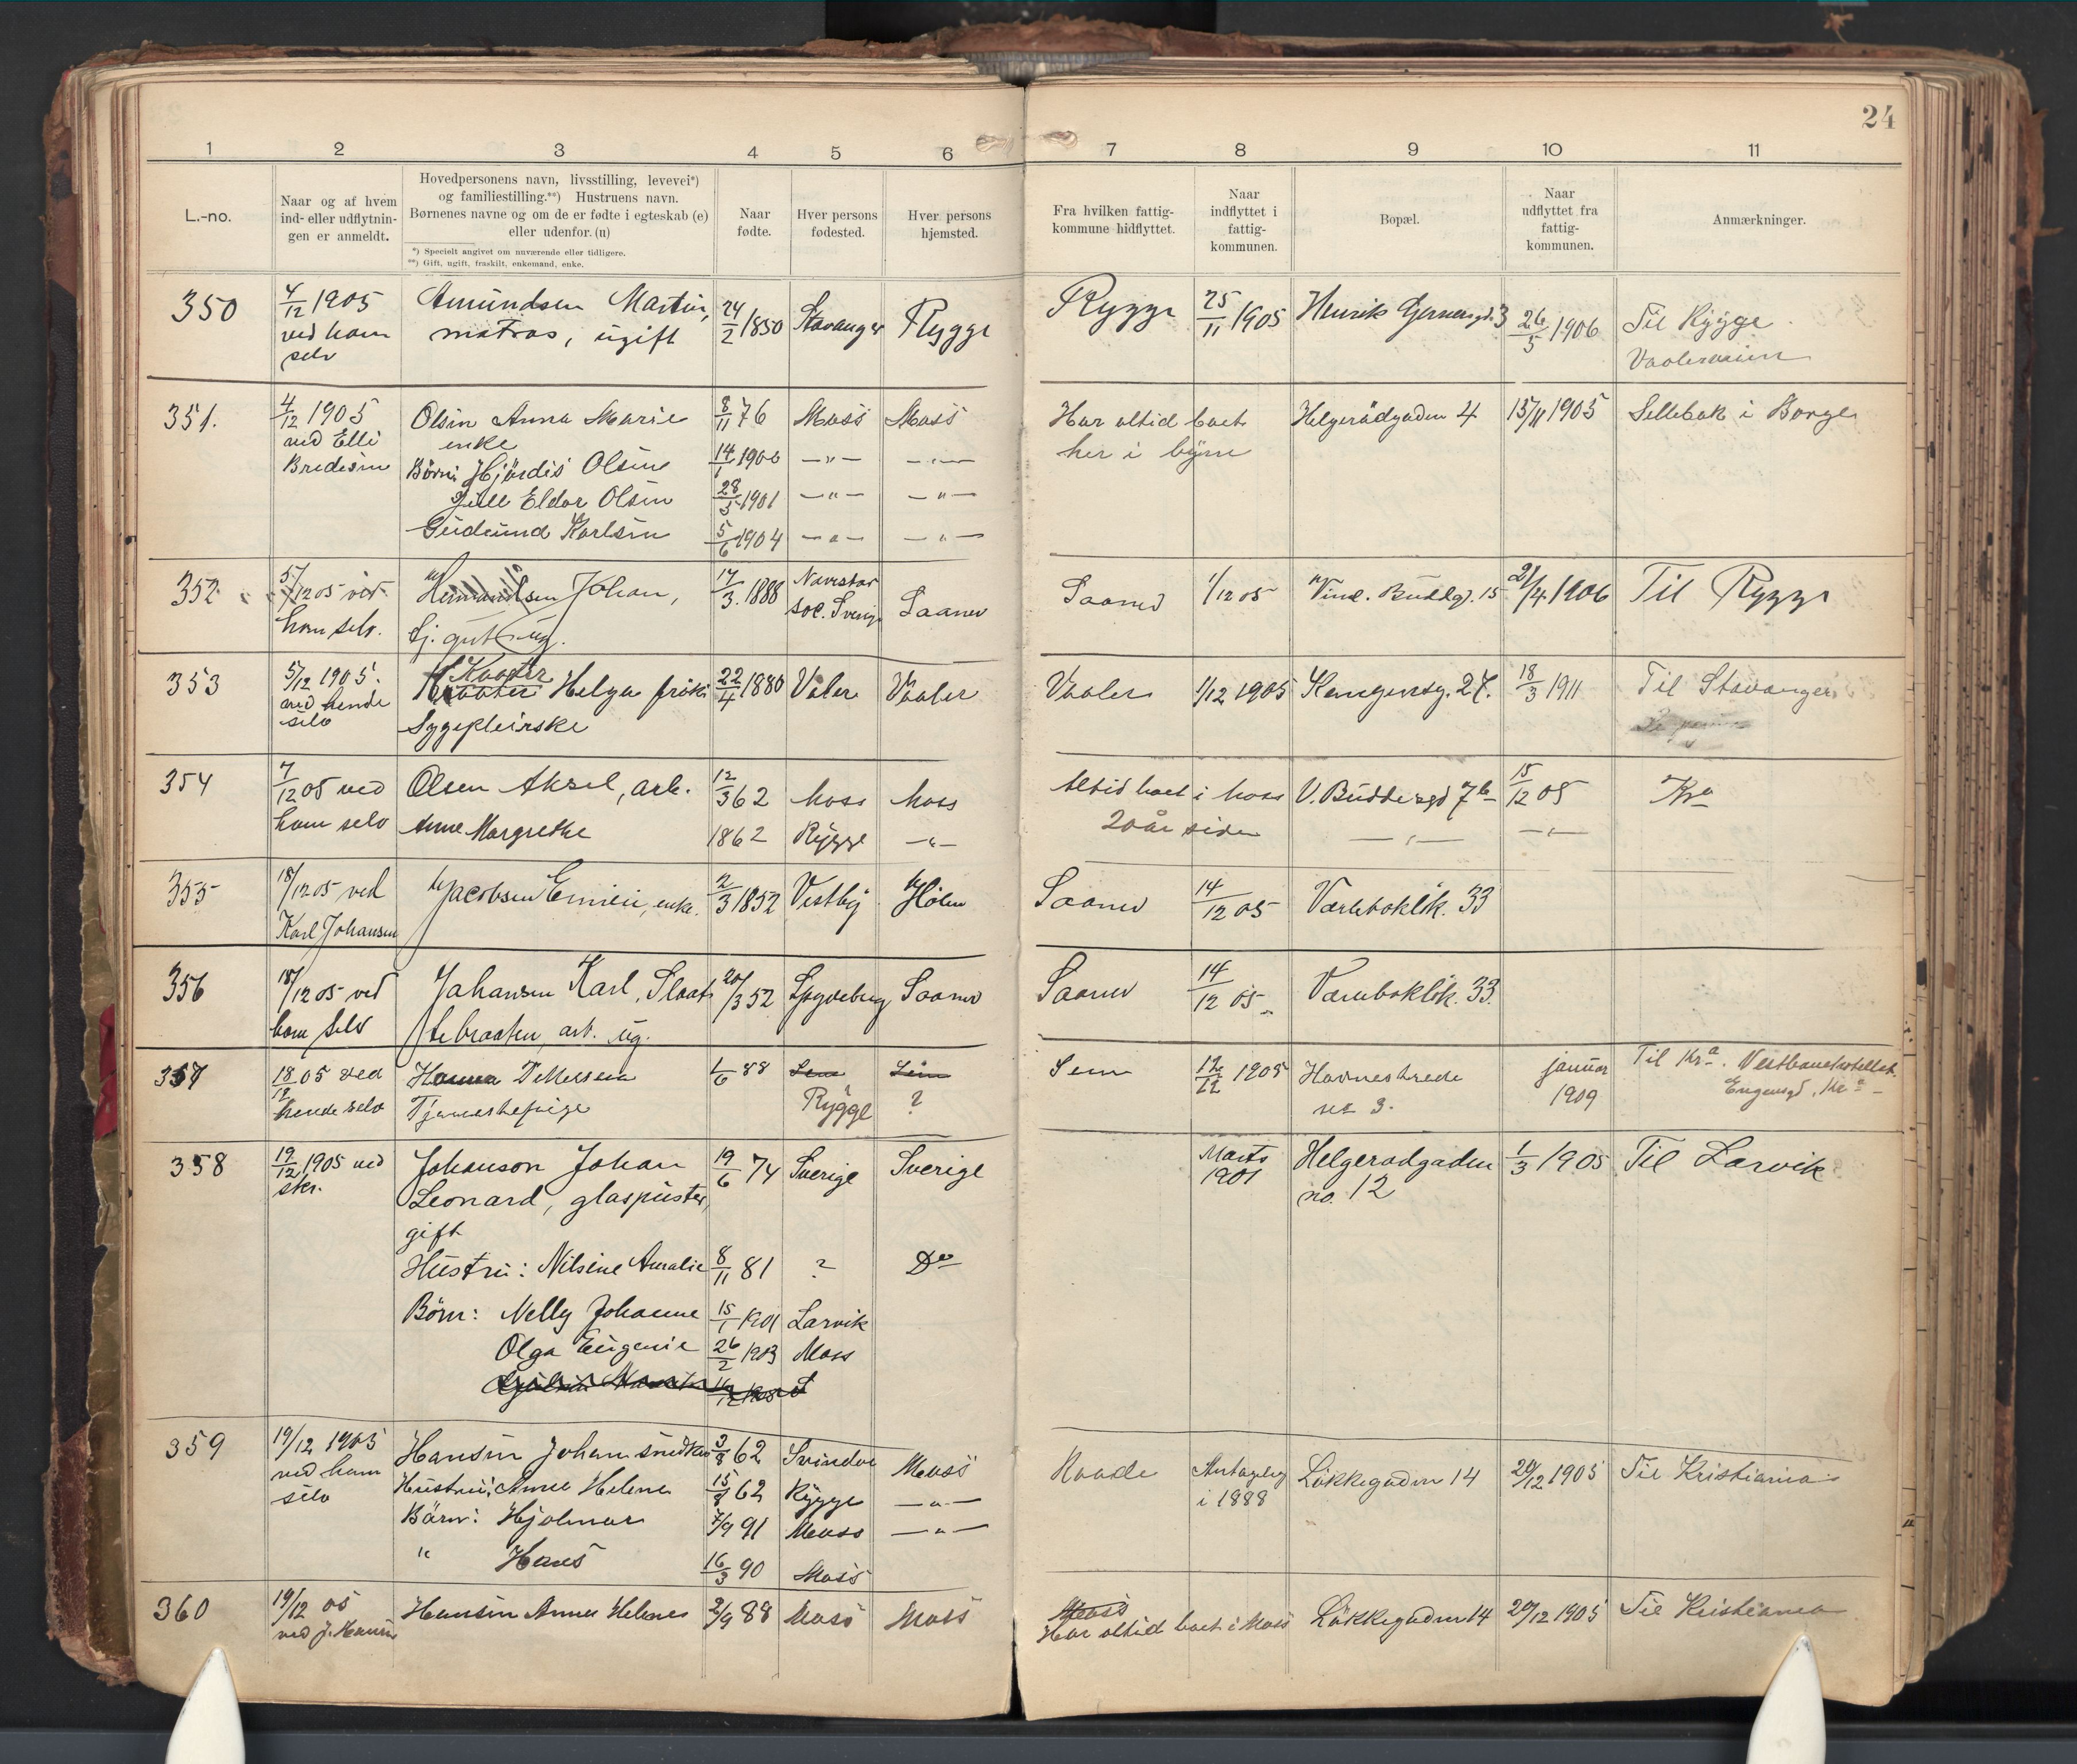 24
1 2 3 4 5 6 7 8 9 10 11
L.-no.
Naar og af hvem
ind- eller udflytnin-
gen er anmeldt.
Hovedpersonens navn, livsstilling, levevei*)
og familiestilling.**) Hustruens navn.
Børnenes navne og om de er fødte i egteskab (e)
eller udenfor. (u)
*) Specielt angivet om nuværende eller tidligere.
**) Gift, ugift, fraskilt, enkemand, enke.
Naar
fødte.
Hver persons
fødested.
Hver persons
hjemsted.
Fra hvilken fattig-
kommune hidflyttet.
Naar
indflyttet i
fattig-
kommunen.
Bopæl.
Naar
udflyttet fra
fattig-
kommunen.
Anmærkninger.
350 4/12 1905 Amundsen Martin, 24/2 1850 Stavanger Rygge Rygge 25/11 1905 Henrik Gernersgd. 3 26/5 1906 Til Rygge
ved ham matros, ugift Vaalerveien
selv
351. 4/12 1905 Olsen Anna Marie 8/11 76 Moss Moss Har altid boet Helgerødgaden 4 15/11 1905 Sellebak i Borge
ved Elli enke her i byen
Bredesen Børn: Hjørdis Olsen 1900 — " — — " —
Eldor Olsen 28/5 1901 — " — — " —
Gudmund Karlsen 5/6 1904 — " — — " —
352 5/12 05 ved Johan, 17/3 1888 Saaner Saaner 1/12 05 Vinc. Buddgd. 15 21/4 1906 Til Rygge
ham selv. tj. gut ug. Sverige
353 5/12 1905. Kaater Helga frøken 22/4 1880 Vaaler Vaaler Vaaler 1/12 1905 Kongensg. 27. 18/3 1911 Til Stavanger
ved hende Sygepleierske
selv
354 7/12 05 ved Olsen Aksel, arb. 12/3 62 Moss Moss Altid boet i Moss V. Buddesgd 7b 15/12 05 Kra
ham selv Anne Margrethe 1862 Rygge — " — 20 år siden — " — — " —
355 18/12 05 ved Jacobsen enke. 2/3 1852 Vestby Hølen Saaner 14/12 05 Varlebakløk. 33
Karl Johansen
356 18/12 05 ved Johansen Karl, Slaat- 20/3 52 Spydeberg Saaner Saaner 14/12 05 Varlebakløk. 33.
ham selv tebraaten, arb. ug.
357 18/12 05 ved Hanna Dellessen 1/6 88 Sem Sem Sem 12/12 1905 Havnestrede januar Til Kra. Vestbanehotellet.
hende selv Tjenestepige Rygge ? no 3. 1909 Engensgd, Kra
358 19/12 1905 ved Johanson Johan 19/6 74 Sverige Sverige Marts Helgerødgaden 1/3 1905 Til Larvik
skr. Leonard, glaspuster, 1901 no. 12
gift
Hustru: Nilsine Amalie 8/11 81 ? Do
Børn: Nelly Johanne 15/1 1901 Larvik
Olga Eugenie 26/2 1903 Moss
359 19/12 1905 Hansen Johan smed 3/8 62 Svindal Moss Raade Antagelig Løkkegaden 14 20/12 1905 Til Kristiania
ved ham Hustru: Anna Helene 15/8 62 Rygge — " — i 1888
selv Børn: Hjalmar 7/9 91 Moss — " —
" Hans 16/3 90 Moss
360 19/12 05 Hansen Anna Helene 2/9 88 Moss Moss Moss Løkkegaden 14 20/12 1905 Til Kristiania
ved J. Hansen Har altid boet i Moss